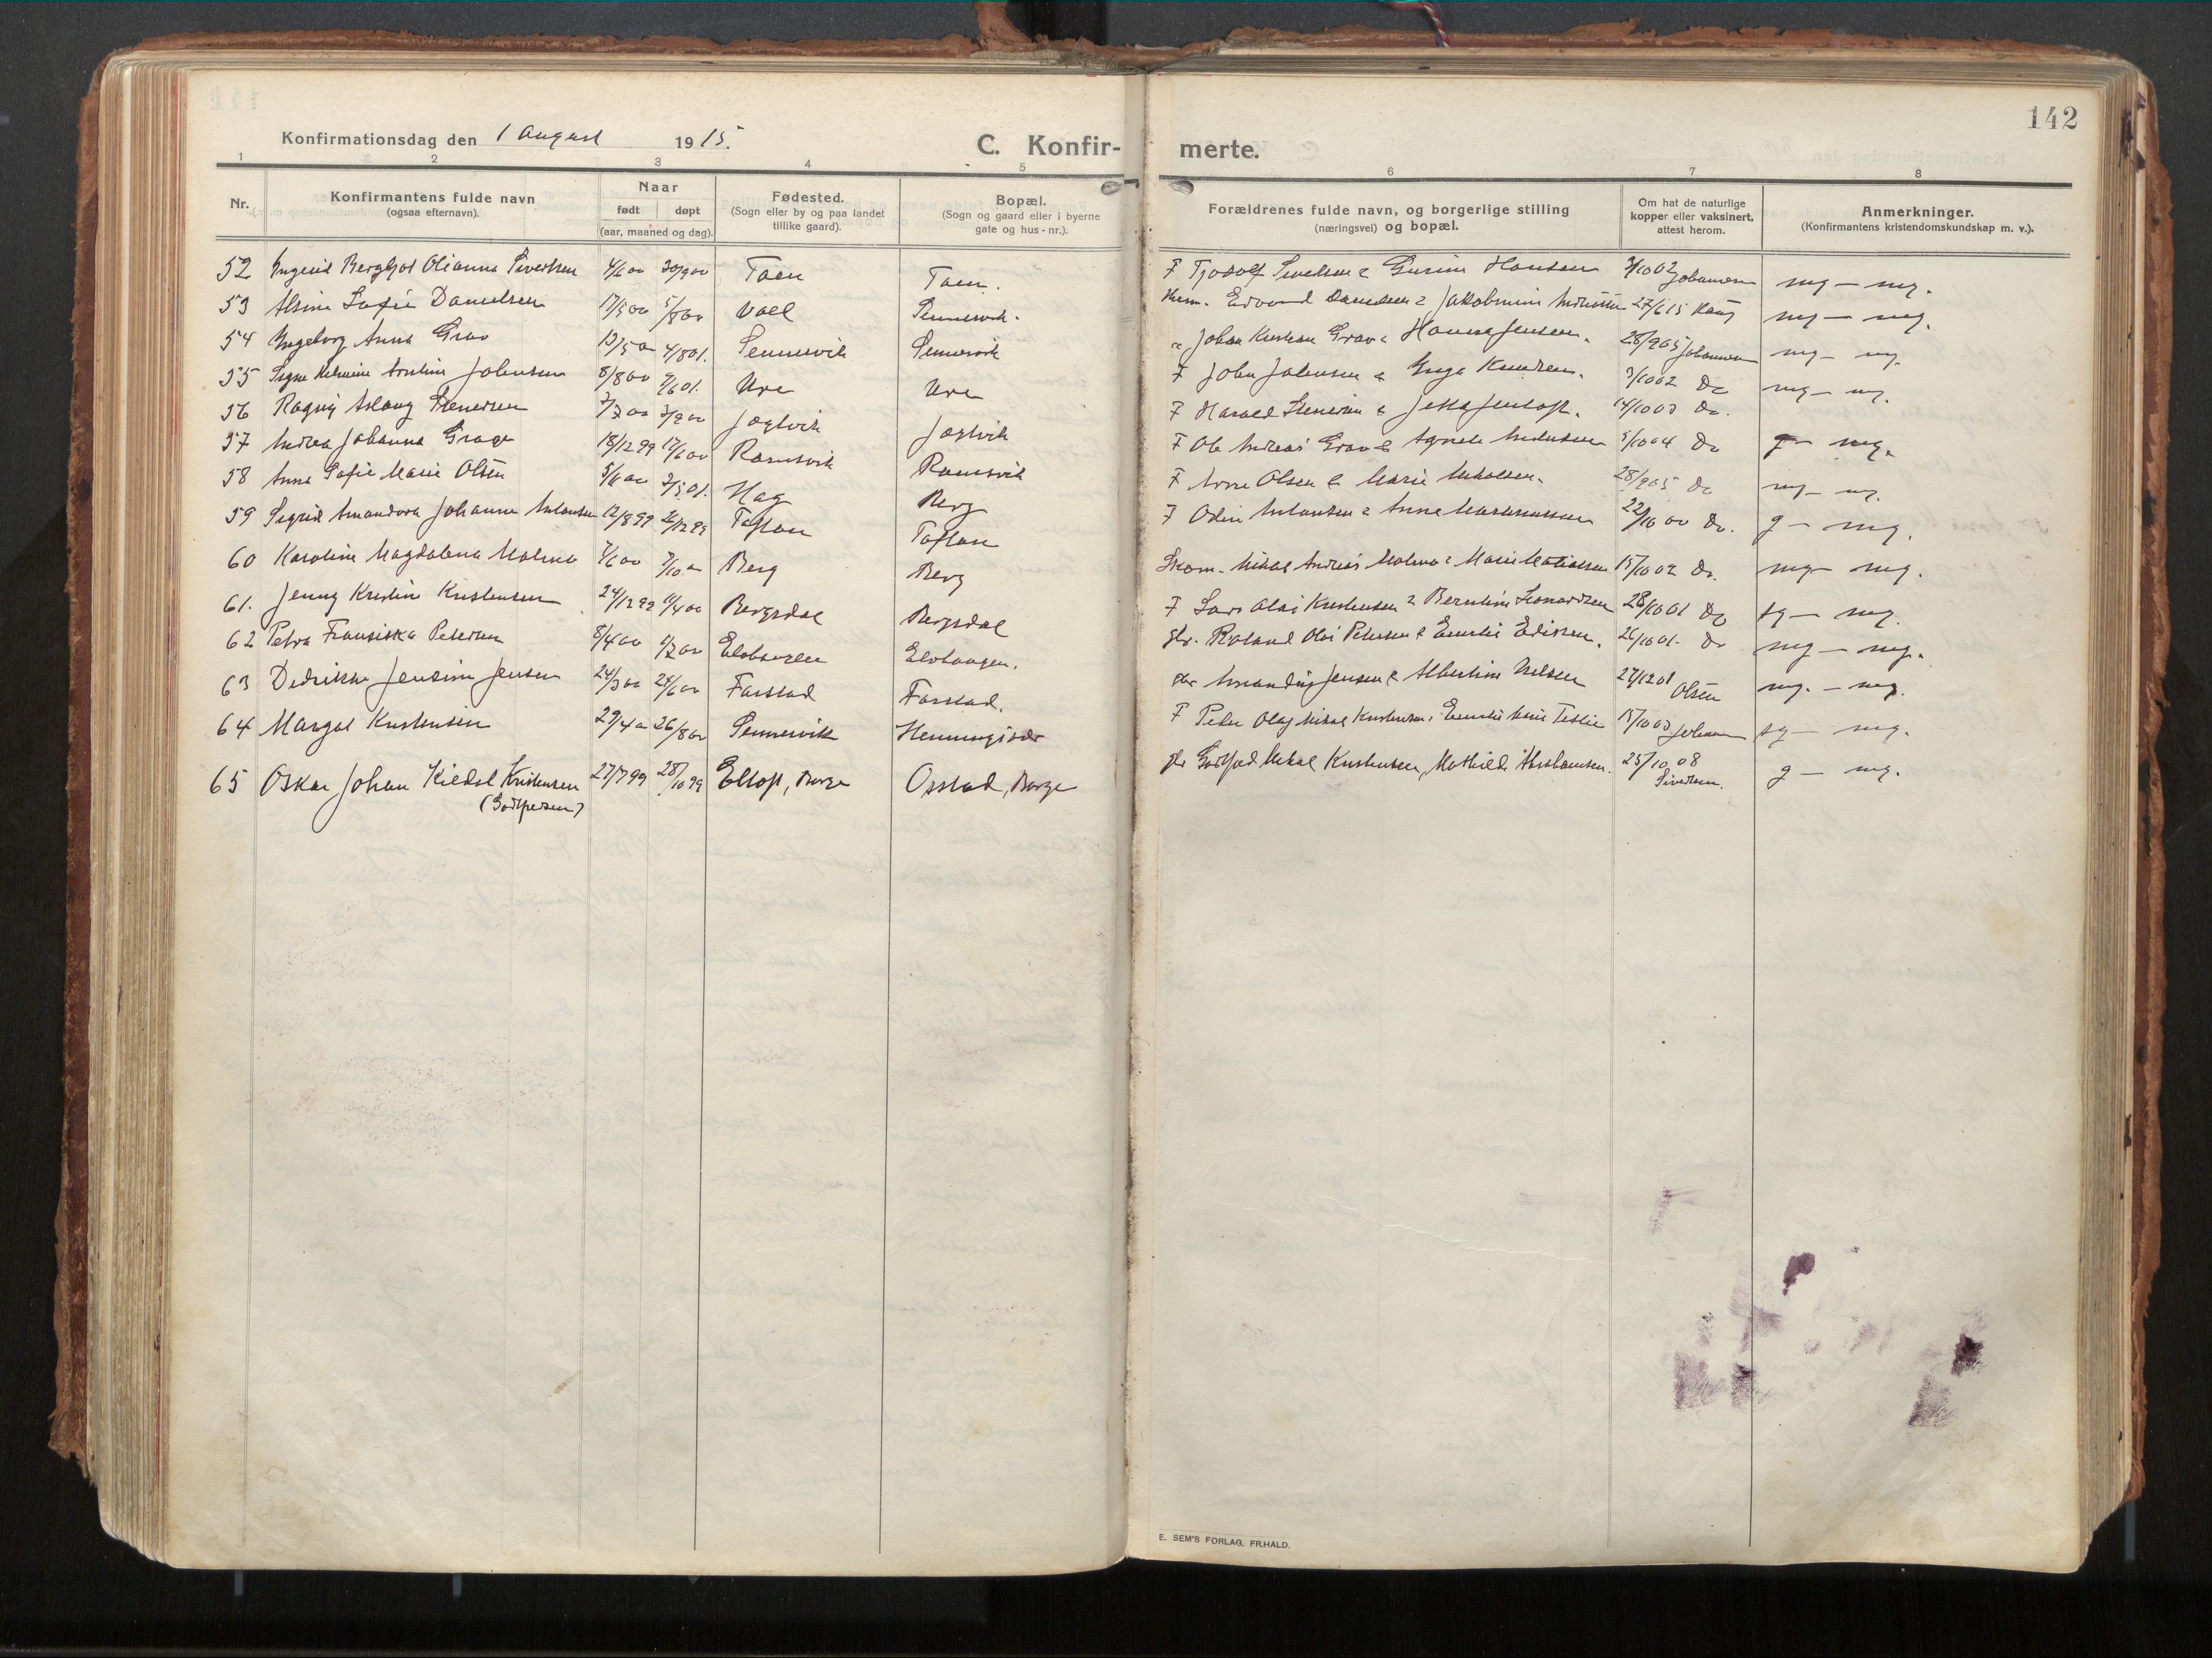 142
Konfirmationsdag den 1 August 1915.
C. Konfir-
merte.
1 2 3 4 5 6 7 8
Nr.
Konfirmantens fulde navn
(ogsaa efternavn).
Naar
født døpt
(aar, maaned og dag).
Fødested.
(Sogn eller by og paa landet
tillike gaard).
Bopæl.
(Sogn og gaard eller i byerne
gate og hus-nr.).
Forældrenes fulde navn, og borgerlige stilling
(næringsvei) og bopæl.
Om hat de naturlige
kopper eller vaksinert,
attest herom.
Anmerkninger.
(Konfirmantens kristendomskundskap m. v.).
52 Ingerid Bergljot Olianna Sivertsen 4/6 00 30/9 00 Taen Taen. F Tjodolf Sivertsen & Gurine Hansen 3/10 02 Johannesen mg – mg.
53 Alvine Sofie Danielsen 17/5 00 5/8 00 Voll Sennesvik. Edvard Danielsen & Jakobmine 27/6 15 mg – mg.
54 Ingeborg Anna Grav 13/5 00 4/8 01. Sennesvik Sennesvik „ Johan Kristian Grav & Hanna Jensen. 28/9 05 Johannesen mg – mg.
55 Signe Helmine Arntine Johnsen 8/8 00 9/6 01. Ure Ure F John Johnsen & Inga Knudsen. 3/10 02 Do mg – mg.
56 Ragnig Aslaug Stenersen 7/7 00 3/9 00 Jogtvik Jogtvik F Harald Stenersen & Jetta Jentoft. 14/10 03 Do.
57 Andrea Johanna Grav 18/12 99 17/6 00 Ramsvik Ramsvik F Ole Andreas Grav & Agnete 5/10 04 Do g – mg.
58 Anna Sofie Marie Olsen 5/11 00 3/5 01. Hag Berg F Arne Olsen & Marie Mikalsen. 28/9 05 Do mg – mg.
59 Sigrid Amandora Johanne Antonsen 12/8 99 26/12 99 Taftan Taftan F Odin Antonsen & Anna 22/10 00 Do. g – mg.
60 Karoline Magdalena Malmo 7/6 00 7/10 00 Berg Berg Mikal Andreas Malmo & Marie Matiassen 15/10 02 Do. mg – mg.
61. Jenny Kristine Kristensen 24/12 99 11/4 00 Bergsdal Bergsdal F Lars Olai Kristensen & Berntine Leonardsen 28/10 01 Do tg – mg.
62 Petra Fransiska Petersen 8/4 00 1/7 00 Elvhaugen Elvhaugen. gbr. Roland Olai Petersen & Emelie Edissen. 26/10 01. Do mg – mg.
63 Dedrikke Jensine Jensen 24/3 00 24/6 00 Farstad Farstad. Amandus Jensen & Albertine Nilsen 27/12 01 Olsen mg. – mg.
64 Margot Kristensen 29/4 00 26/8 00 Sennesvik Henningsvær F Peder Olaj Mikal Kristensen, Emelie Marie 15/10 03 Johannesen tg – mg.
65 Oskar Johan Kildal Kristensen 27/7 99 28/10 99 Eltoft, Borge Osstad, Borge gbr Godtfred Mikal Kristensen, Mathilde Kristiansen. 25/10 08 g – mg.
(Godtfredsen) Sivertsen.
E. SEM'S FORLAG, FR.HALD.